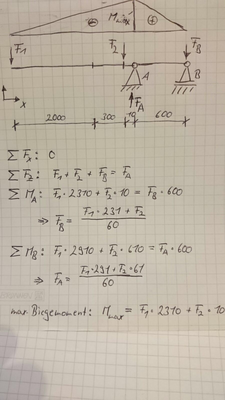 ⊖ M_max ⊕
F₁ F₂ F_B
A B
F_A
x
2000 300 10 600
Σ F_x: 0
Σ F_z: F₁ + F₂ + F_B = F_A
Σ M_A: F₁ · 2310 + F₂ · 10 = F_B · 600
⇒ F_B = (F₁ · 231 + F₂) / 60
Σ M_B: F₁ · 2910 + F₂ · 610 = F_A · 600
⇒ F_A = (F₁ · 291 + F₂ · 61) / 60
max. Biegemoment: M_max = F₁ · 2310 + F₂ · 10